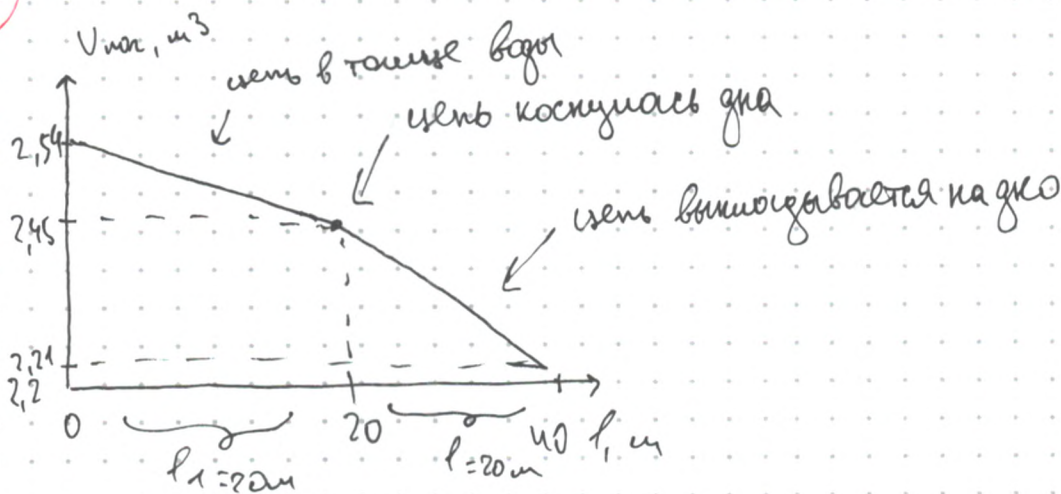 Vпог, м³
цепь в толще воды
цепь коснулась дна
цепь выкладывается на дно
2,54
2,45
2,21
2,2
0
20
40 l, м
l₁=20м
l=20м